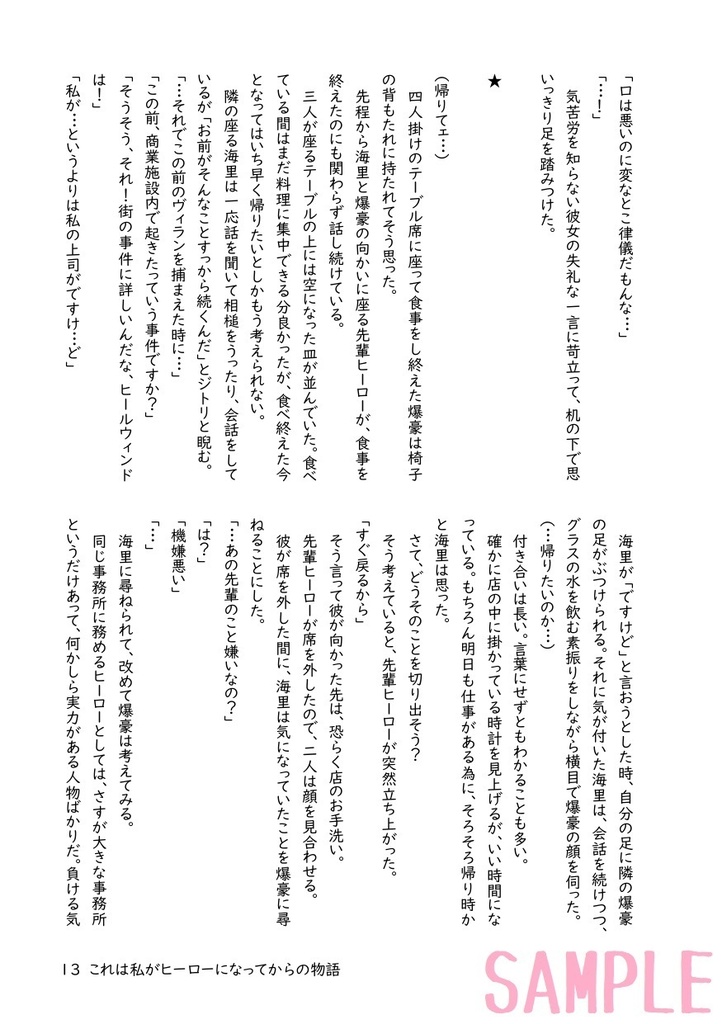 「口は悪いのに変なとこ律儀だもんな…」
「…！」
気苦労を知らない彼女の失礼な一言に苛立って、机の下で思
いっきり足を踏みつけた。
★
（帰りてェ…）
四人掛けのテーブル席に座って食事をし終えた爆豪は椅子
の背もたれに持たれてそう思った。
先程から海里と爆豪の向かいに座る先輩ヒーローが、食事を
終えたのにも関わらず話し続けている。
三人が座るテーブルの上には空になった皿が並んでいた。食べ
ている間はまだ料理に集中できる分良かったが、食べ終えた今
となってはいち早く帰りたいとしかもう考えられない。
隣の座る海里は一応話を聞いて相槌をうったり、会話をして
いるが「お前がそんなことすっから続くんだ」とジトリと睨む。
「…それでこの前のヴィランを捕まえた時に…」
「この前、商業施設内で起きたっていう事件ですか？」
「そうそう、それ！街の事件に詳しいんだな、ヒールウィンド
は！」
「私が…というよりは私の上司がですけ…ど」
海里が「ですけど」と言おうとした時、自分の足に隣の爆豪
の足がぶつけられる。それに気が付いた海里は、会話を続けつつ、
グラスの水を飲む素振りをしながら横目で爆豪の顔を伺った。
（…帰りたいのか…）
付き合いは長い。言葉にせずともわかることも多い。
確かに店の中に掛かっている時計を見上げるが、いい時間にな
っている。もちろん明日も仕事がある為に、そろそろ帰り時か
と海里は思った。
さて、どうそのことを切り出そう？
そう考えていると、先輩ヒーローが突然立ち上がった。
「すぐ戻るから」
そう言って彼が向かった先は、恐らく店のお手洗い。
先輩ヒーローが席を外したので、二人は顔を見合わせる。
彼が席を外した間に、海里は気になっていたことを爆豪に尋
ねることにした。
「…あの先輩のこと嫌いなの？」
「は？」
「機嫌悪い」
「…」
海里に尋ねられて、改めて爆豪は考えてみる。
同じ事務所に務めるヒーローとしては、さすが大きな事務所
というだけあって、何かしら実力がある人物ばかりだ。負ける気
13 これは私がヒーローになってからの物語
SAMPLE